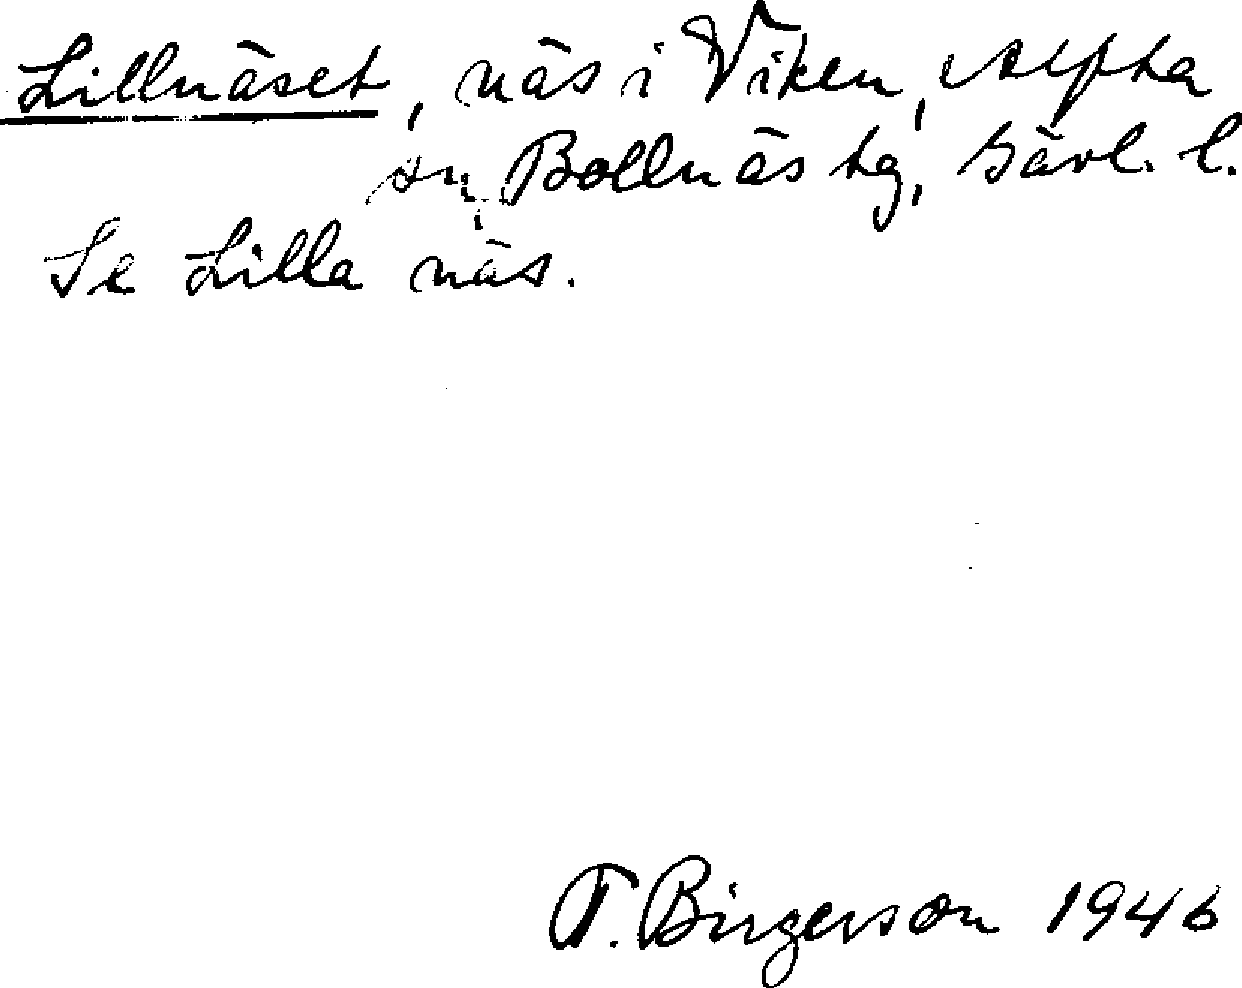 Lillnäset, näs i Viken, Alfta
sn, Bollnäs tg, Gävl. l.
Se Lilla näs.
T. Birgerson 1946